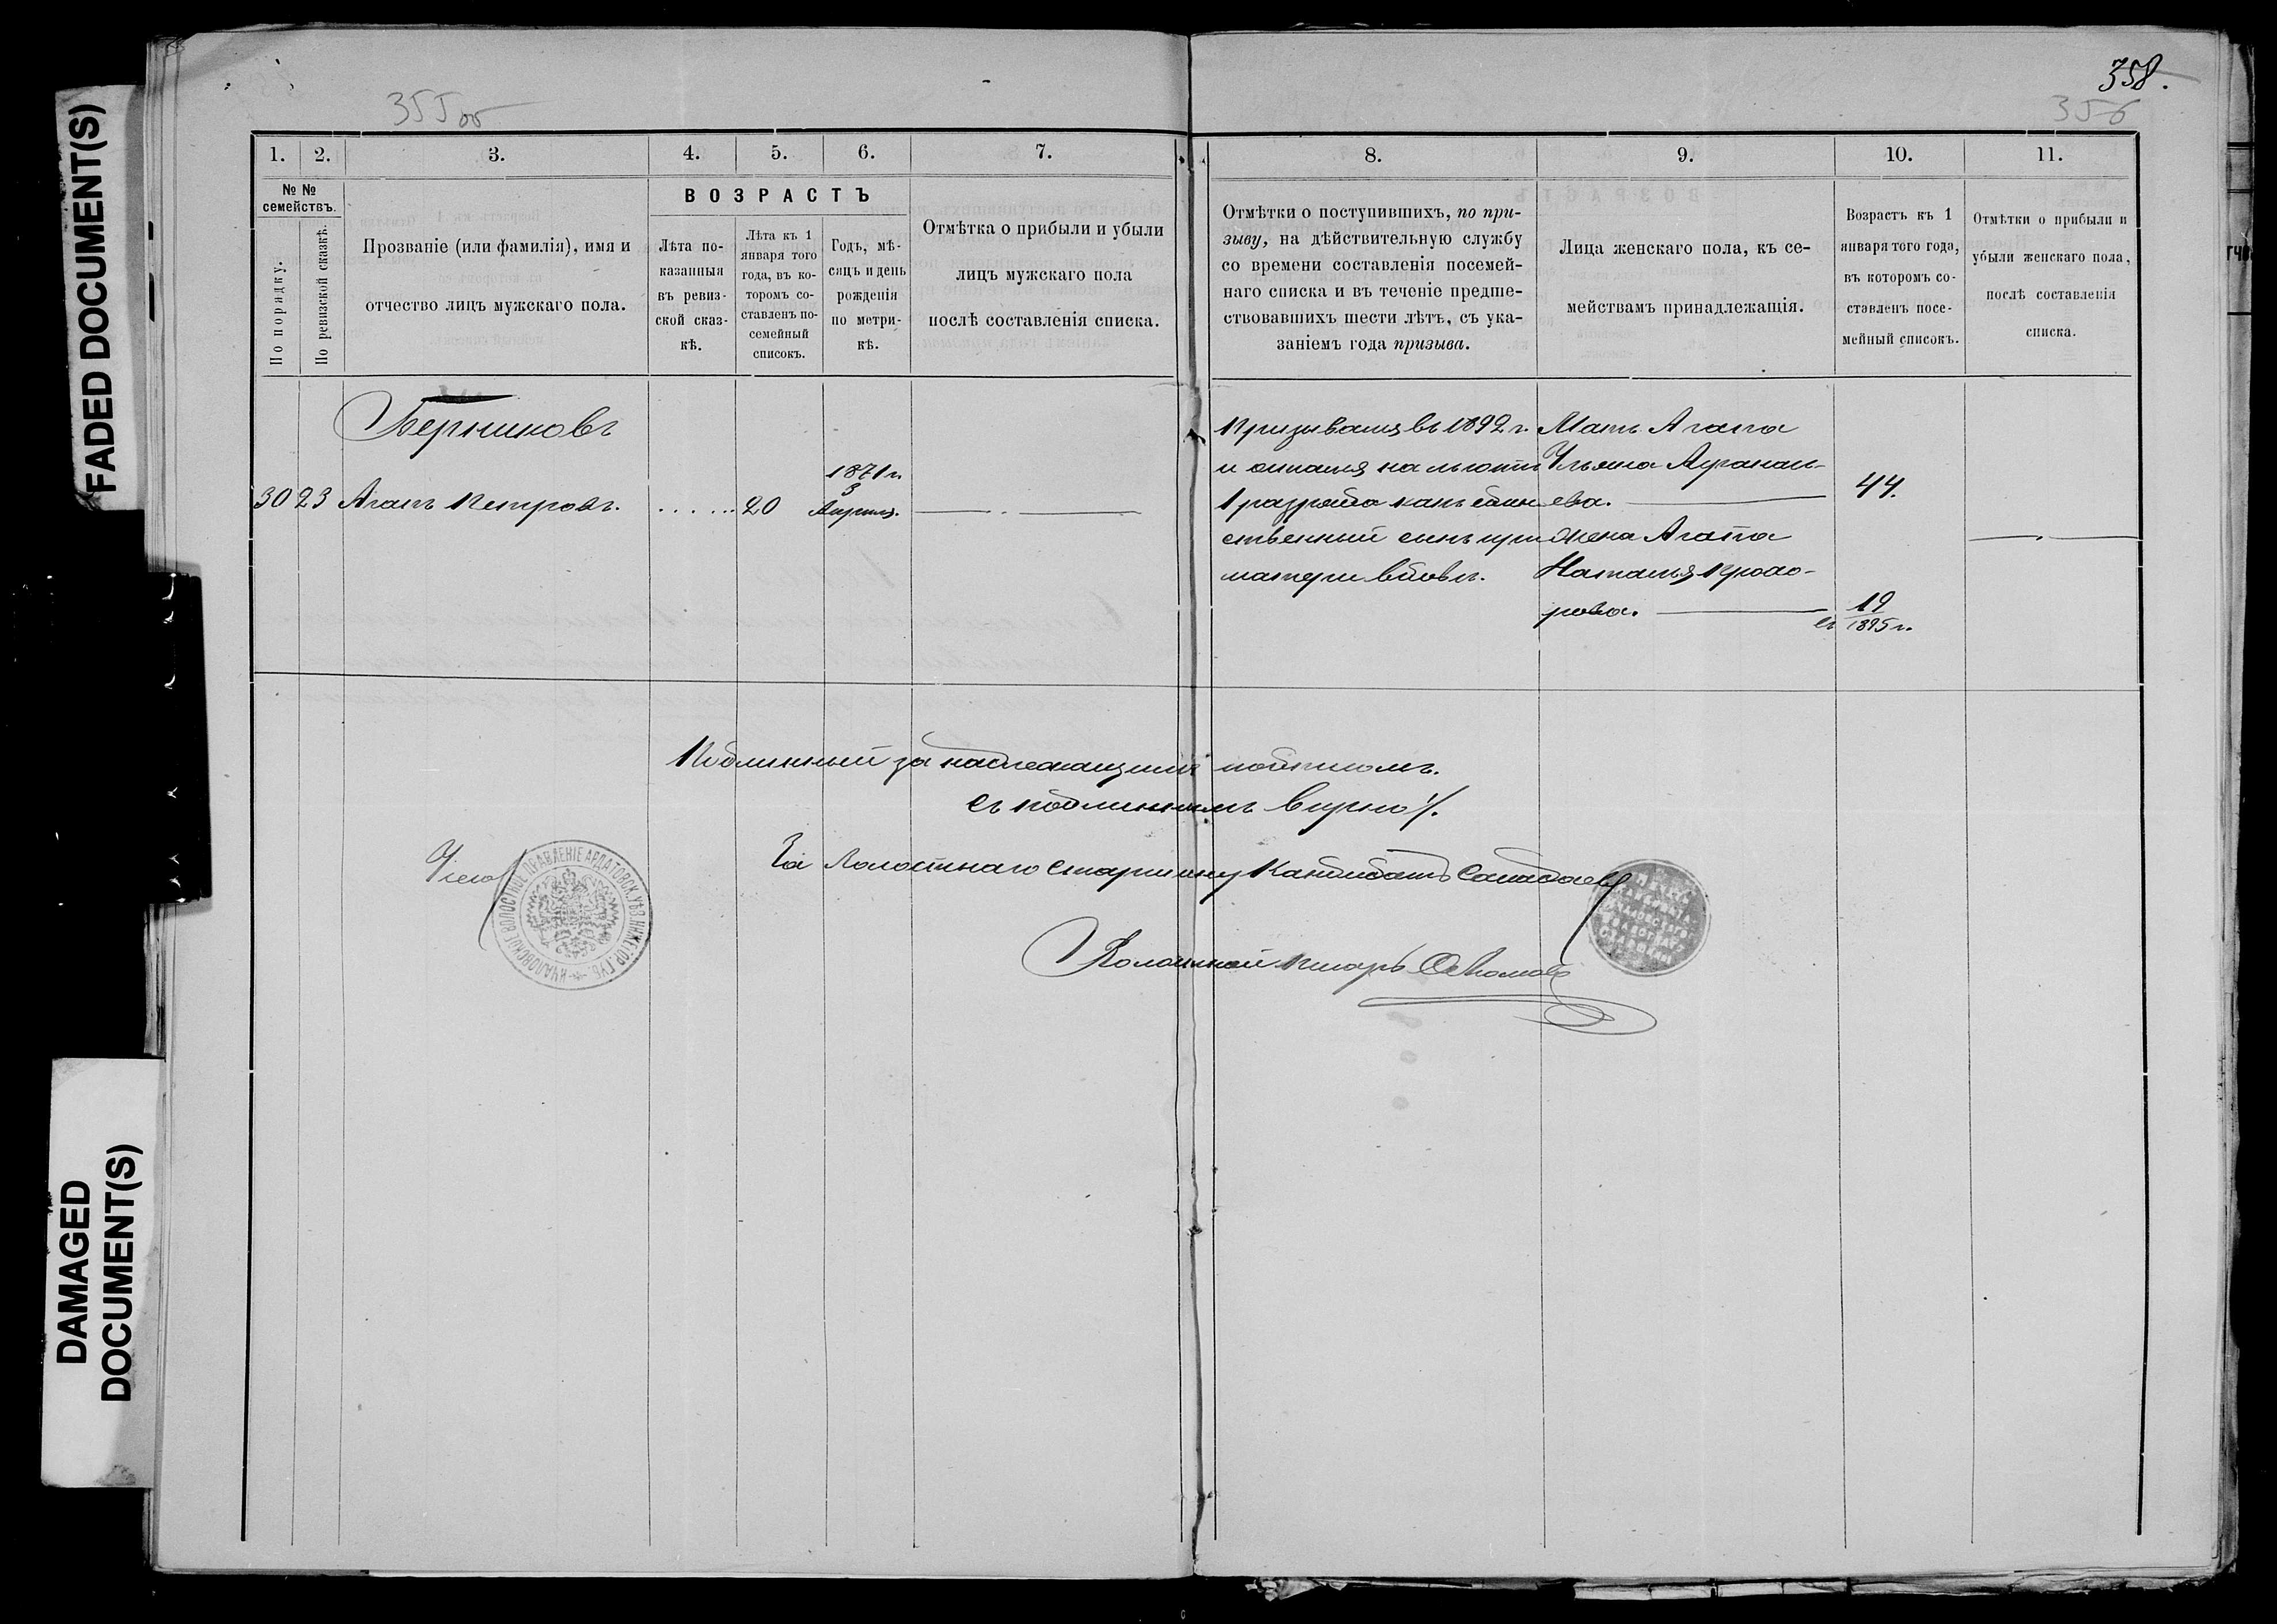 FADED DOCUMENT(S)
DAMAGED
DOCUMENT(S)
355об
358.
356
1.
2.
3.
4.
5.
6.
7.
8.
9.
10.
11.
№ №
семействъ.
По порядку.
По ревизской сказкѣ.
Прозваніе (или фамилія), имя и
отчество лицъ мужскаго пола.
ВОЗРАСТЪ
Лѣта по-
казанныя
въ ревиз-
ской сказ-
кѣ.
Лѣта къ 1
января того
года, въ ко-
торомъ со-
ставленъ по-
семейный
списокъ.
Годъ, мѣ-
сяцъ и день
рожденія
по метри-
кѣ.
Отмѣтка о прибыли и убыли
лицъ мужскаго пола
послѣ составленія списка.
Отмѣтки о поступившихъ, по при-
зыву, на дѣйствительную службу
со времени составленія посемей-
наго списка и въ теченіе предше-
ствовавшихъ шести лѣтъ, съ ука-
заніемъ года призыва.
Лица женскаго пола, къ се-
мействамъ принадлежащія.
Возрастъ къ 1
января того года,
въ которомъ со-
ставленъ посе-
мейный списокъ.
Отмѣтки о прибыли и
убыли женскаго пола,
послѣ составленія
списка.
30 23 Агапъ Петровъ. . . . . . . 20
1871 г.
3
Апрѣля.
Призывался въ 1892 г.
и остался на льготѣ
1 разряда какъ един
ственный сынъ при
матери вдовѣ.
Мать Агапа
Ульяна Афанась-
ева.
44.
Жена Агапа
Наталья Прохо-
рова.
19
съ 1895 г.
Подлинный за надлежащимъ подписомъ.
Съ подлиннымъ вѣрно
За Волостнаго Старшину Кандидатъ
Волостной Писарь
ВОЛОСТНОЕ ПРАВЛЕНІЕ АРДАТОВСК. УѢЗ. НИЖЕГОР. ГУБ.